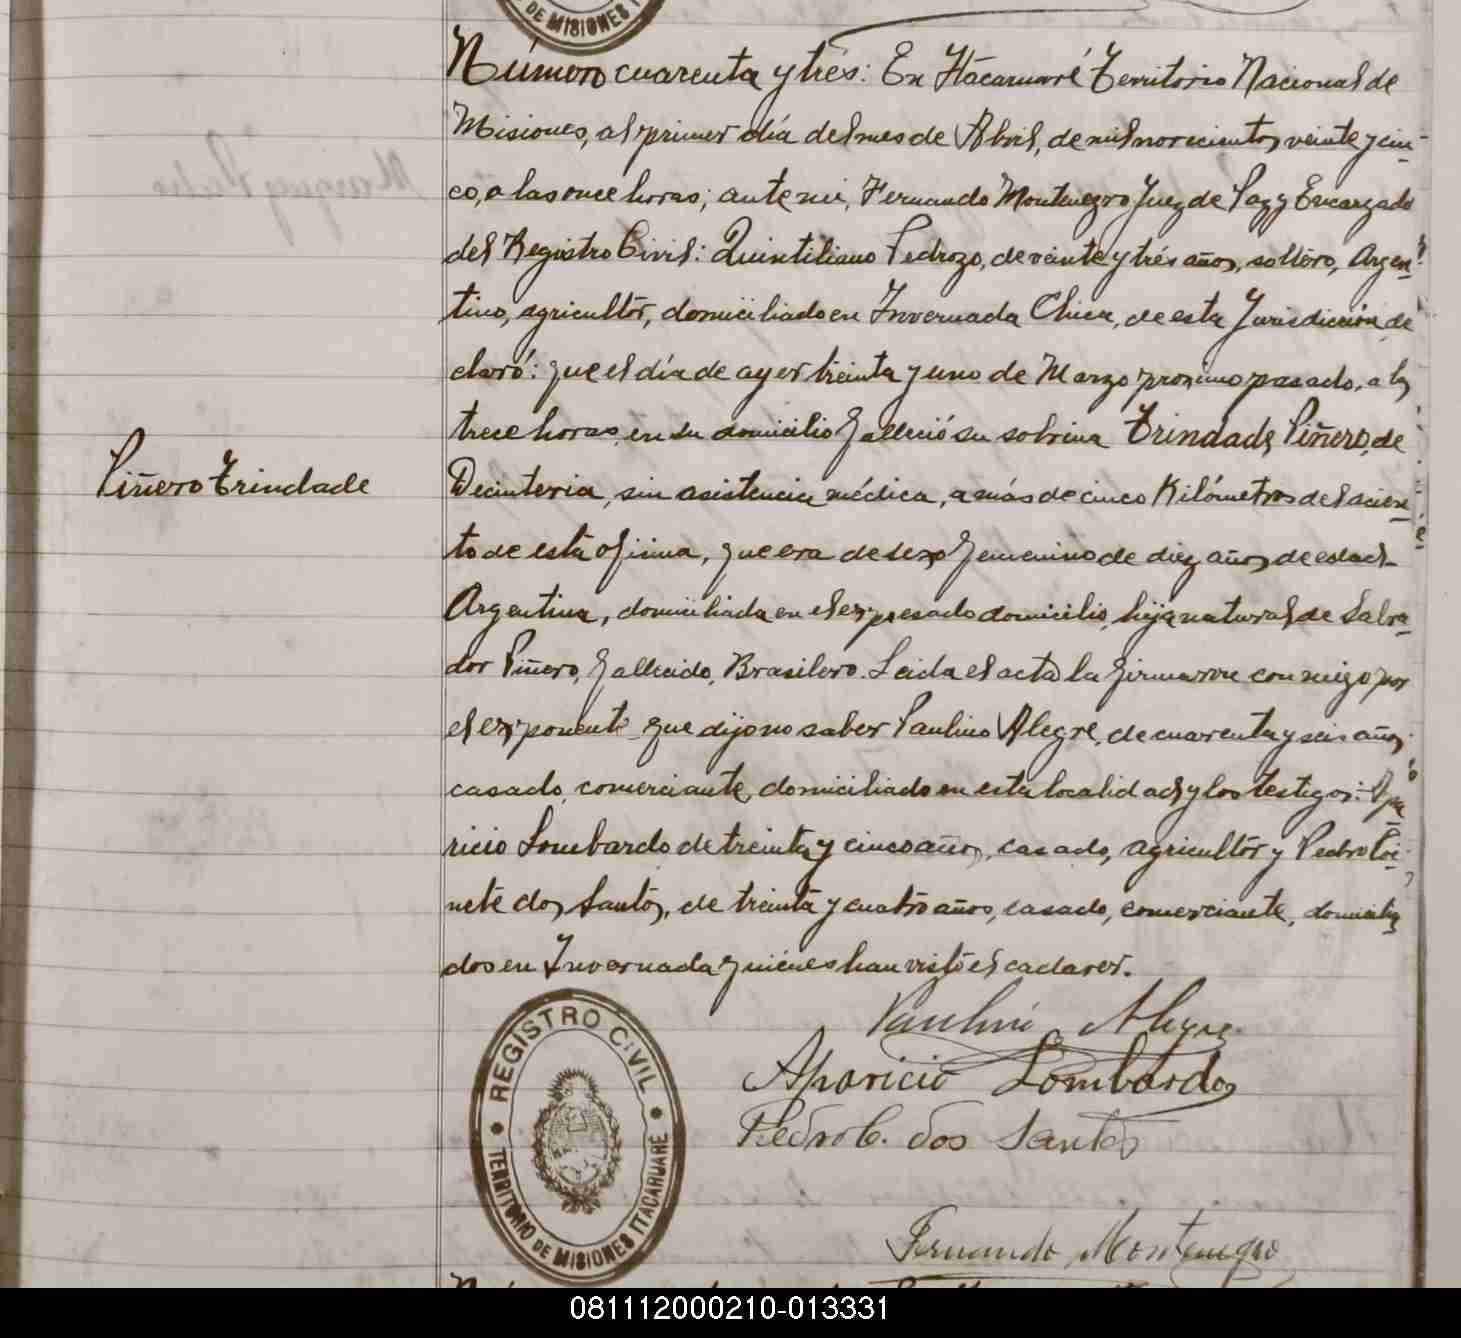 DE MISIONES I
Número cuarenta y trés: En Itacaruaré Territorio Nacional de
Misiones, al primer día del mes de Abril, de mil novecientos veinte y cin-
co, a las once horas; ante mi, Fernando Montenegro Juez de Paz y Encargado
del Registro Civil: Quintiliano Pedrozo, de veinte y trés años, soltero, Argen-
tino, agricultor, domiciliado en Invernada Chica, de esta Jurisdicción de
claró: que el día de ayer treinta y uno de Marzo proximo pasado, a las
trece horas, en su domicilio falleció su sobrina Trindade Piñero, de
Piñero Trindade
Decinteria, sin asistencia médica, a más de cinco Kilómetros del acien-
to de esta oficina, que era de sexo femenino de diez años de edad
Argentina, domiciliada en el expresado domicilio, hija natural de Salva-
dor Piñero, fallecido, Brasilero. Leida el acta la firmaron conmigo por
el exponente que dijo no saber Paulino Alegre, de cuarenta y seis años,
casado, comerciante, domiciliado en esta localidad y los testigos: Apa-
ricio Lombardo de treinta y cinco años, casado, agricultor y Pedro Poi-
nete dos Santos, de treinta y cuatro años, casado, comerciante, domicilia
dos en Invernada quienes han visto el cadaver.
Paulino Alegre
Aparicio Lombardo
Pedro C. dos Santos
Fernando Montenegro
REGISTRO CIVIL
TERRITORIO DE MISIONES ITACARUARE
081112000210-013331